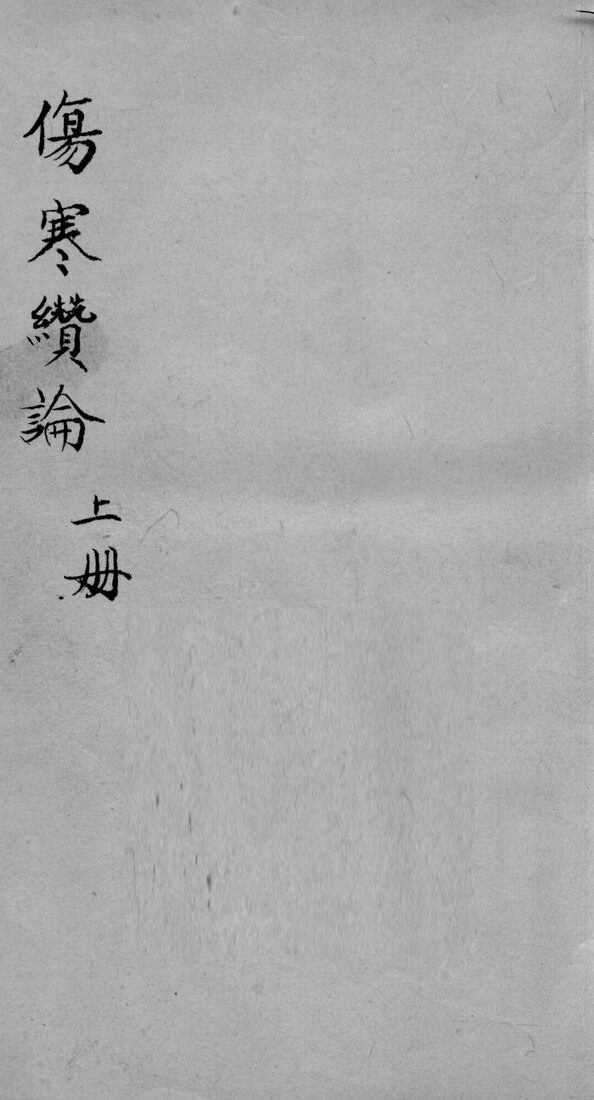 傷寒纘論
上册